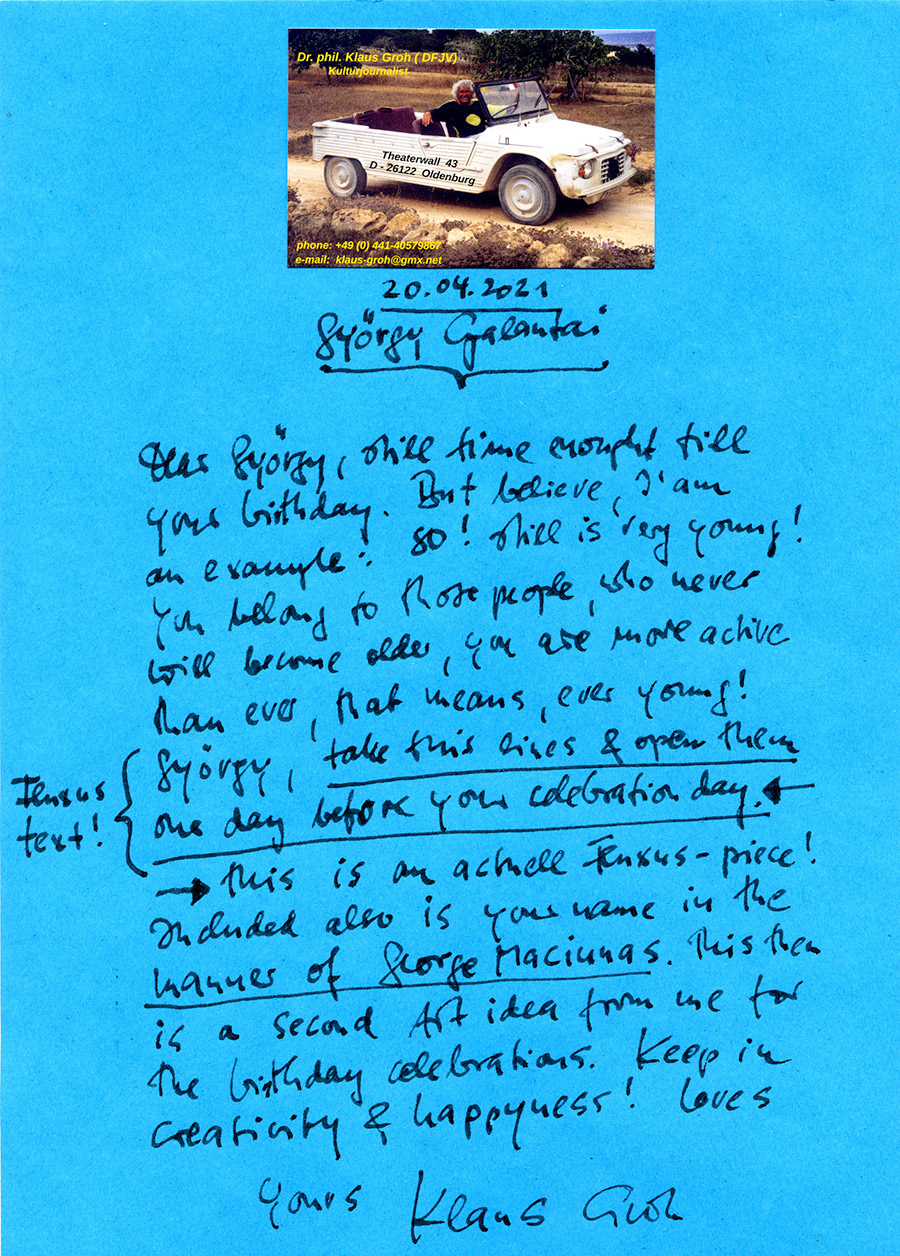 Dr. phil. Klaus Groh ( DFJV)
Kulturjournalist
Theaterwall 43
D - 26122 Oldenburg
phone: +49 (0) 441-40579867
e-mail: klaus-groh@gmx.net
20.04.2021
György Galantai
Dear György, still time enought till
your birthday. But believe, I'am
an example: 80! still is very young!
You belong to those people, who never
will become older, you are more active
than ever, that means, ever young!
György, take this lines & open them
one day before your celebration day.←
Fluxus
text!
→ this is an actuell Fluxus-piece!
Included also is your name in the
manner of George Maciunas. This then
is a second Art idea from me for
the birthday celebrations. Keep in
creativity & happyness! Loves
yours Klaus Groh